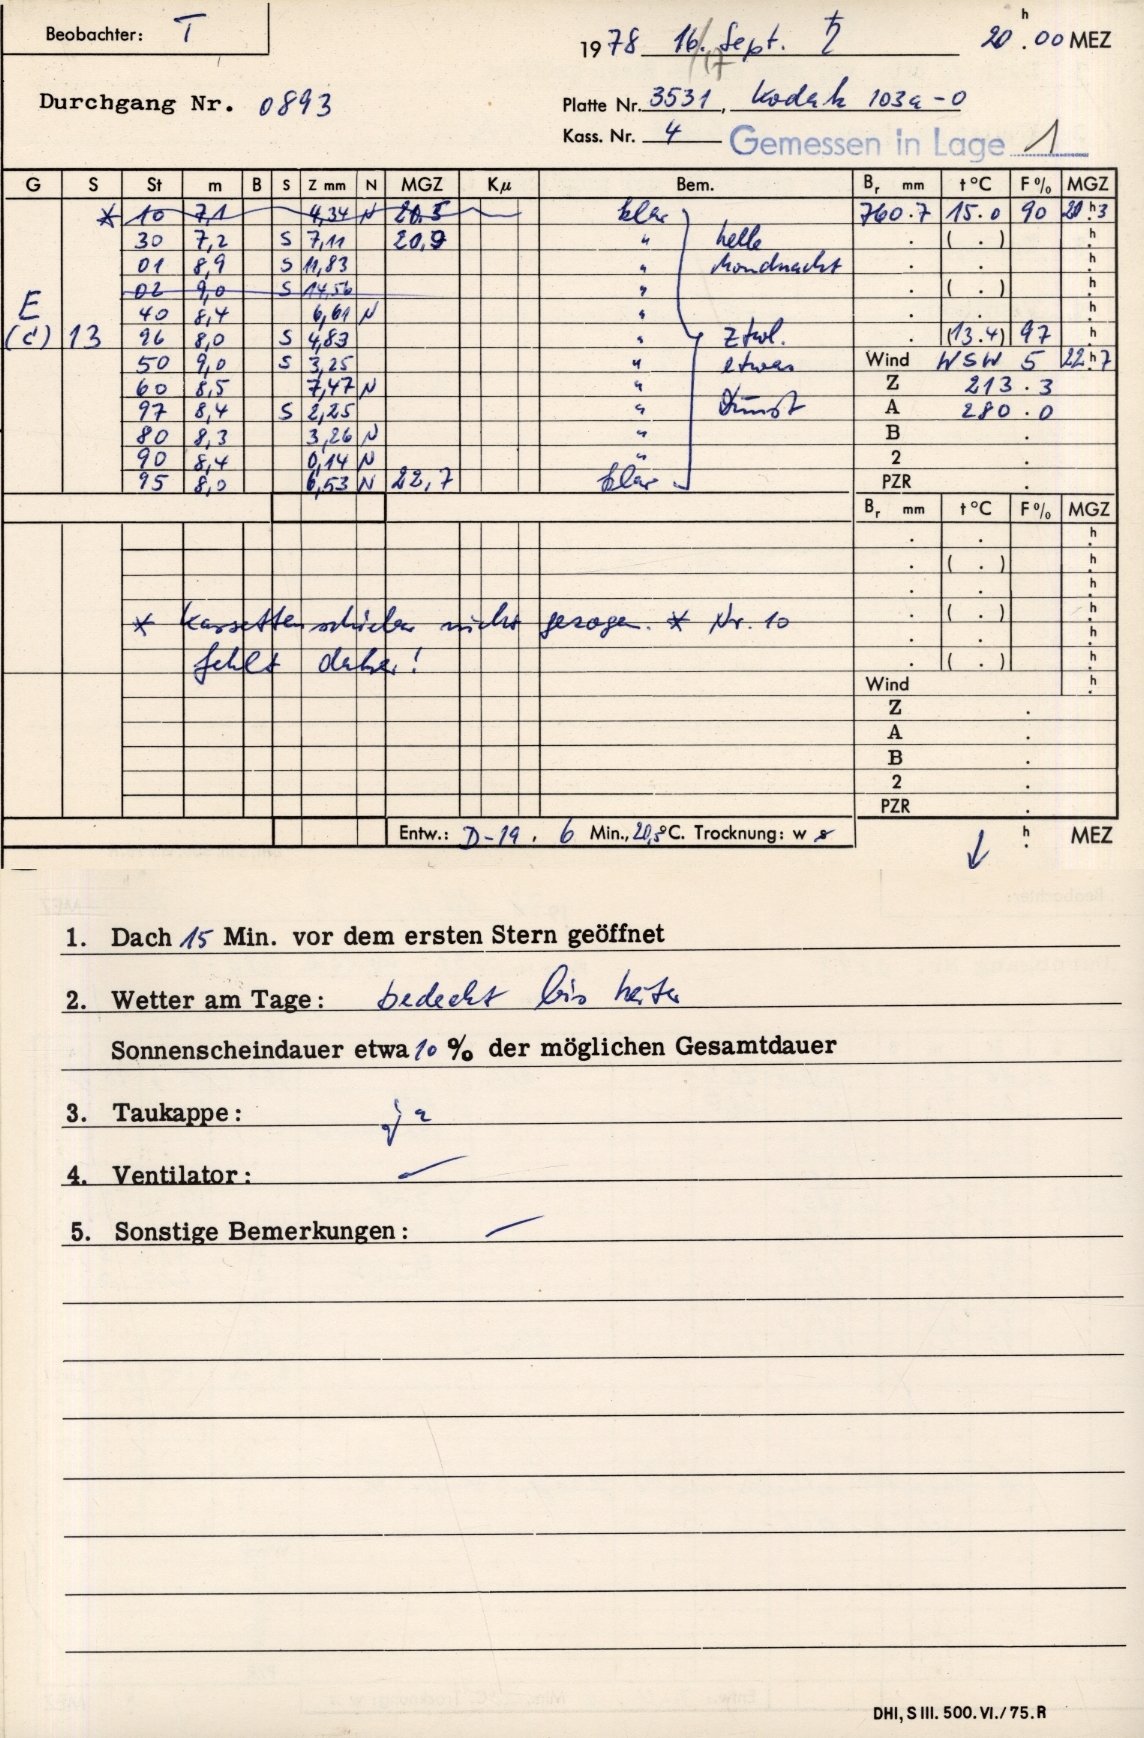 Beobachter: T
1978 16./17 Sept. ♄ 20 h . 00 MEZ
Durchgang Nr. 0893
Platte Nr. 3531, Kodak 103a-O
Kass. Nr. 4 Gemessen in Lage 1
G S St m B S Z mm N MGZ Kμ Bem. Br mm t°C F% MGZ
* 10 7,1 4,34 N klar 760.7 15.0 90 20 h 3
30 7,2 S 7,11 20,9 " helle . ( . ) h
01 8,9 S 11,83 " Mondnacht . . h
02 9,0 S 14,56 " . ( . ) h
E 40 8,4 6,61 N " . . h
(d) 13 96 8,0 S 4,83 " ztwl. . (13.4) 97 h
50 9,0 S 3,25 " etwas Wind WSW 5 22 h 7
60 8,5 7,47 N " Z 213.3
97 8,4 S 2,25 " Dunst A 280.0
80 8,3 3,26 N " B .
90 8,4 0,14 N " 2 .
95 8,0 6,53 N 22,7 klar PZR .
Br mm t°C F% MGZ
. . h
. ( . ) h
. . h
* Kassettenschieber nicht gezogen. * Nr. 10 . ( . ) h
. . h
fehlt daher! . ( . ) h
Wind h
Z .
A .
B .
2 .
PZR .
Entw.: D-19, 6 Min., 20,5°C. Trocknung: w s
↓ h . MEZ
1. Dach 15 Min. vor dem ersten Stern geöffnet
2. Wetter am Tage: bedeckt bis heiter
Sonnenscheindauer etwa 10 % der möglichen Gesamtdauer
3. Taukappe: ja
4. Ventilator: –
5. Sonstige Bemerkungen: –
DHI, S III. 500. VI./75. R